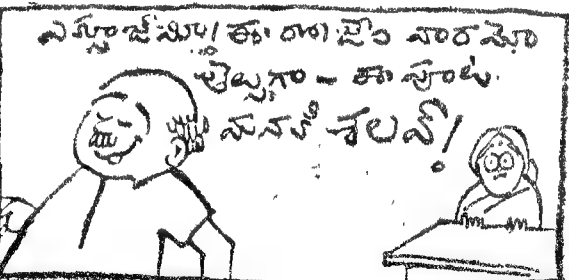 ఎస్క్యూజ్‌మీ! ఈ రోజేం వారమో
తెల్సుగా – ఈ పూట
మనకి శలవ్!